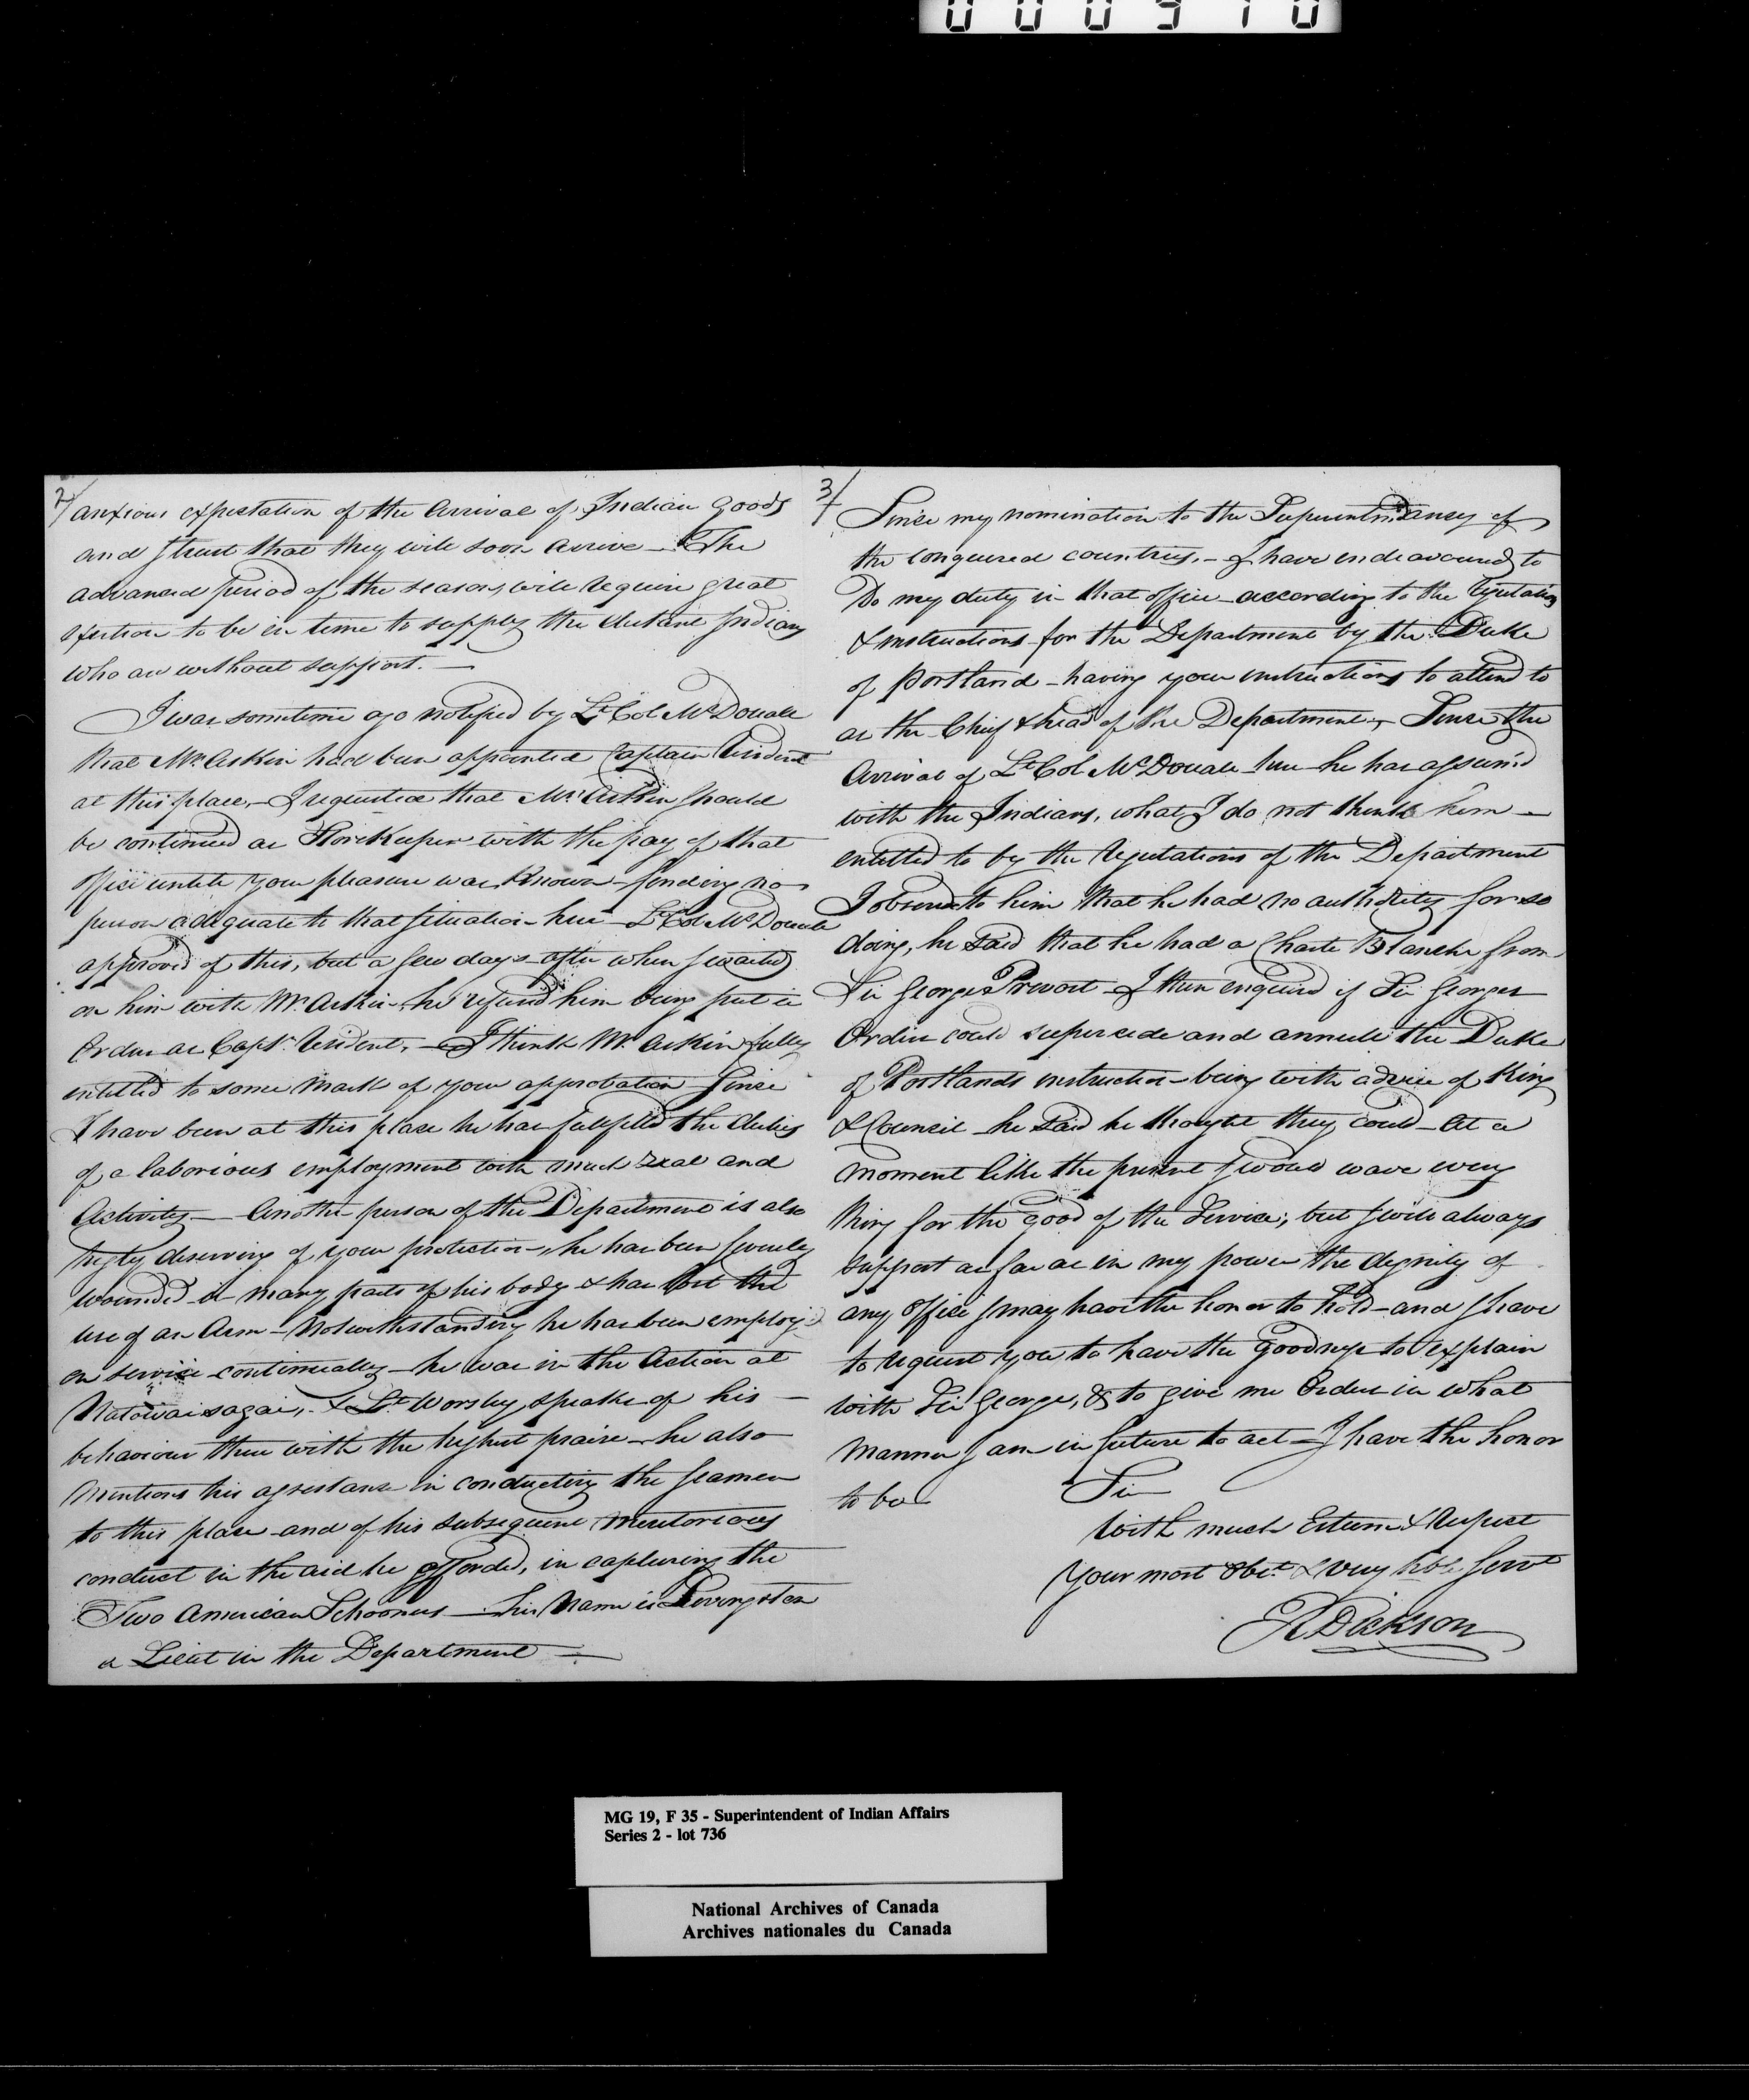 000910
2/ anxious expectation of the Arrival of Indian Goods
and I trust that they will soon arrive — The
advanced period of the season, will require great
exertion to be in time to supply the distant Indians
who are without support. —
I was sometime ago notified by Lt Col McDouall
that Mr Askin had been appointed Captain Resident
at this place, — I requested that Mr Askin should
be continued as StoreKeeper with the pay of that
office untill your pleasure was Known — finding no
person adequate to that situation here — Lt Col McDouall
approved of this, but a few days after when I waited
on him with Mr Askin, he refused him being put in
Orders as Capt. Resident. — I think Mr Askin fully
entitled to some mark of your approbation Since
I have been at this place he has fullfilled the duties
of a laborious employment with much zeal and
Activity — Another person of the Department is also
highly deserving of your protection, he has been severely
wounded in many parts of his body & has lost the
use of an Arm — Notwithstanding he has been employ'd
on service continually — he was in the Action at
Natawaisagai, & Lt. Worsley speaks of his —
behaviour there with the highest praise — he also
mentions his assistance in conducting the Seamen
to this place and of his subsequent meritorious
conduct in the aid he afforded, in capturing the
Two American Schooners — his Name is Livingston
a Lieut in the Department —
3/ Since my nomination to the Superintendancy of
the conquered countries, — I have endeavoured to
Do my duty in that office according to the regulations
& instructions for the Department by the Duke
of Portland — having your instructions to attend to
as the Chief & head of the Department, — Since the
Arrival of Lt Col McDouall here he has assum'd
with the Indians, what I do not think him —
entitled to by the regulations of the Department
I observed to him that he had no authority for so
doing, he said that he had a Charte Blanche from
Sir George Prevost — I then enquired if Sir Georges
Orders could supercede and annull the Duke
of Portlands instruction being with advice of King
& Council — he said he thought they could — At a
moment like the present I would wave every
thing for the good of the Service; but I will always
support as far as in my power the dignity of
any office I may have the honor to hold — and I have
to request you to have the goodness to explain
with Sir George, & to give me Orders in what
manner I am in future to act — I have the honor
to be
Sir
With much Esteem & Respect
Your most Obt. & very hble Servt
R Dickson
MG 19, F 35 - Superintendent of Indian Affairs
Series 2 - lot 736
National Archives of Canada
Archives nationales du Canada